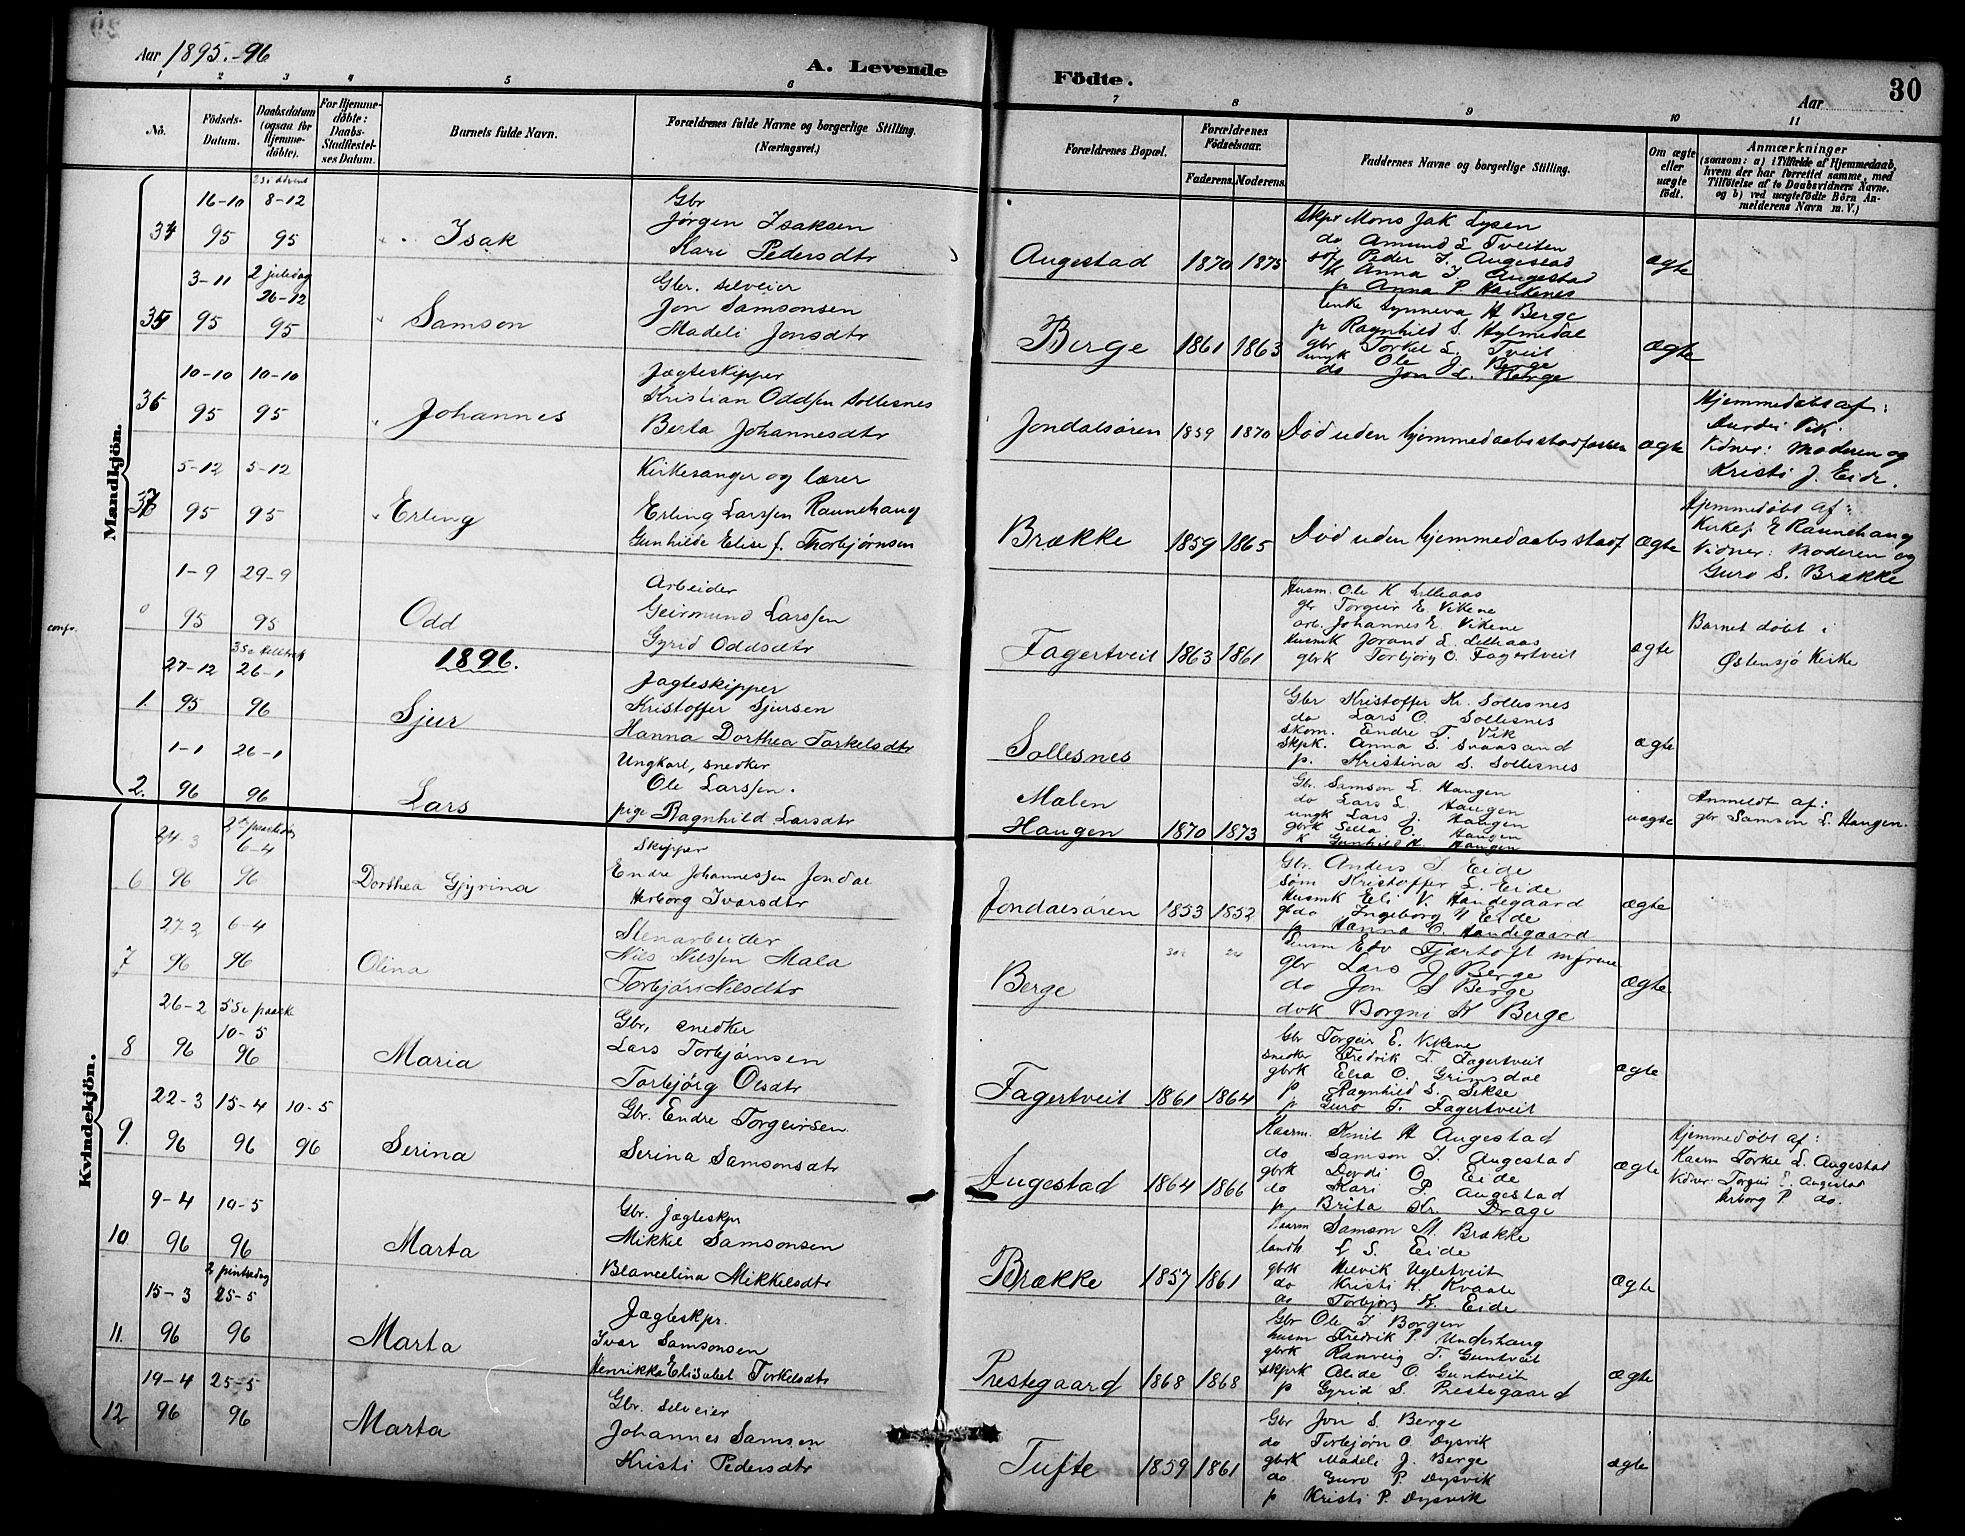 Aar 1895.-96
A. Levende
Födte.
Aar
30
1 2 3 4 5 6 7 8 9 10 11
No.
Födsels-Datum.
Daabsdatum (ogsaa for Hjemme-döbte).
For Hjemme-döbte: Daabs-Stadfestel-ses Datum.
Barnets fulde Navn.
Forældrenes fulde Navne og borgerlige Stilling.
(Næringsvei.)
Forældrenes Bopæl.
Forældrenes Födselsaar.
Faderens. Moderens.
Faddernes Navne og borgerlige Stilling.
Om ægte eller uægte födt.
Anmærkninger
(saasom: a) i Tilfælde af Hjemmedaab, hvem der har forrettet samme, med Tilföielse af to Daabsvidners Navne. og b) ved uægtefödte Börn Anmelderens Navn m. V.)
Mandkjön.
34
16-10 95
2 s i advent 8-12 95
Isak
Gbr
Jørgen Isaksen
Kari Pedersdtr
Augestad
1870 1875
Skpr Mons Jak Lysen
do Amund L Tveiten
Peder I. Augestad
Anna I. Augestad
p Anna P. Haukenes
ægte
35
3-11 95
2 juledag 26-12 95
Samson
Gbr. selveier
Jon Samsonsen
Madeli Jonsdtr
Berge
1861 1863
Enke Synneva H Berge
p Ragnhild S. Hylmedal
gbr Torkel L. Tveit
ungk Ole J Berge
do Jon L. Berge
ægte
36
10-10 95
10-10 95
Johannes
Jægteskipper
Kristian Oddsen Sollesnes
Berta Johannesdtr
Jondalsøren
1859 1870
Død uden hjemmedaabsstadfæstn
ægte
Hjemmedøbt af:
Durdei Vik.
Vidner: Moderen og
Kristi J. Eide.
37
5-12 95
5-12 95
Erling
Kirkesanger og lærer
Erling Larssen Raunehaug
Gunhilde Elise f. Thorbjørnsen
Brække
1859 1865
Død uden hjemmedaabsstadf
ægte
Hjemmedøbt af:
Kirkes E Raunehaug
Vidner: Moderen og
Guro S. Brække
0
1-9 95
29-9 95
Odd
Arbeider
Geirmund Larssen
Gyrid Oddsdtr
Fagertveit
1863 1861
Husm. Ole K Lilleaas
gbr Torgeir E. Vikene
arb. Johannes E. Vikene
Husmk Jorand L. Lilleaas
gbrk Torbjørg O. Fagertveit
ægte
Barnet døbt i
Østensjø Kirke
confr.
1896.
1.
27-12 95
26-1 96
Sjur
Jagteskipper
Kristoffer Sjursen
Hanna Dorthea Torkelsdtr
Sollesnes
Gbr Kristoffer Kr. Sollesnes
do Lars O. Sollesnes
Skom. Endre T. Vik
Skpk. Anna S. Svaasand
p. Kristina S. Sollesnes
ægte
2.
1-1 96
26-1 96
Lars
Ungkarl, snedker
Ole Larssen.
pige Ragnhild Larsdtr
Malen
Haugen
1870 1873
Gbr. Samson L. Haugen
do Lars L. Haugen
ungk Lars J. Haugen
gbrk Sella O. Haugen
k Gunhild H. Haugen
uægte
Anmeldt af:
gbr Samson L. Haugen.
Kvindekjön.
6
24 3 96
2den paaskedag 6-4 96
Dorthea Gjyrina
Skipper
Endre Johannessen Jondal
Herborg Ivarsdtr
Jondalsøren
1853 1852
Gbr. Anders I Eide
Søm Kristoffer L. Eide
Husmk Eli V. Handegaard
do Ingeborg N Eide
p Hanna O. Handegaard
ægte
7
27-2 96
6-4 96
Olina
Stenarbeider
Nils Nilssen Mala
Torbjør Nilsdtr
Berge
Edv Fjærtoft
gbr Lars J Berge
do Jon S Berge
do k Borgni K Berge
ægte
8
26-2 96
5 Se paaske 10-5 96
Maria
Gbr, snedker
Lars Torbjørnsen
Torbjörg Olsdtr
Fagertveit
1861 1864
Gbr Torgeir E. Vikene
snedkr Fredrik T. Fagertveit
gbrk Elsa O. Grimsdal
p Ragnhild S. Sekse
p Guro T. Fagertveit
ægte
9.
22-3 96
15-4 96
10-5 96
Serina
Gbr. Endre Torgeirsen
Serina Samsonsdtr
Augestad
1864 1866
Kaarm. Knut H Augestad
do Samson I. Augestad
gbrk Dordi O Eide
do Kari P. Augestad
p. Brita Kr. Drage
ægte
Hjemmedøbt af:
Kaarm Torkel L. Augestad
Vidner: Torgeir E. Augestad
Herborg P do.
10
9-4 96
10-5 96
Marta
Gbr. Jægteskpr
Mikkel Samsonsen
Blanselina Mikkelsdtr
Brække
1857 1861
Kaarm Samson M. Brække
landh L S. Eide
gbrk Helvik Ugletveit
do Kristi K. Kvaale
do Torbjørg K. Eide
ægte
11.
15-3 96
2 pintsedag 25-5 96
Marta
Jægteskpr.
Ivar Samsonsen
Henrikke Elisabet Torkelsdtr
Prestegaard
1868 1868
Gbr Ole I Borgen
husm Fredrik P. Underhaug
gbrk Ranveig T. Guntveit
skprk Alide O. Guntveit
p Gyrid S. Prestegaard
ægte
12
19-4 96
25-5 96
Marta
Gbr. selveier
Johannes Samsen
Kristi Pedersdtr
Tufte
1859 1861
Gbr Jon S. Berge
do Torbjørn O. Dysvik
gbrk Madeli J. Berge
do Guro P. Dysvik
p Kristi P. Dysvik
ægte